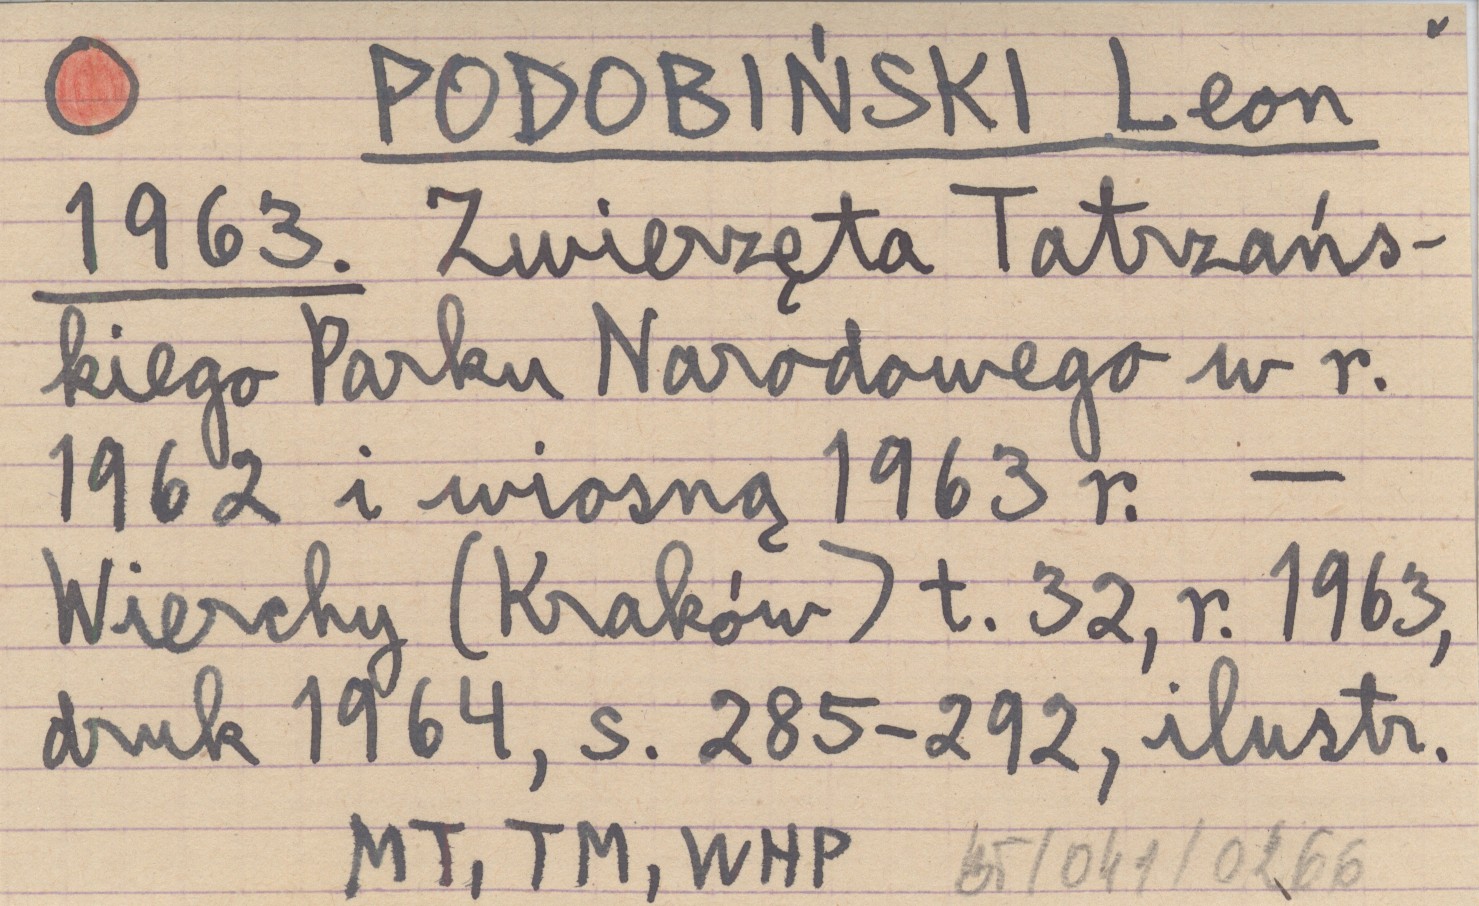 PODOBIŃSKI Leon
1963. Zwierzęta Tatrzańs-
kiego Parku Narodowego w r.
1962 i wiosną 1963 r. —
Wierchy (Kraków) t. 32, r. 1963,
druk 1964, s. 285-292, ilustr.
MT, TM, WHP